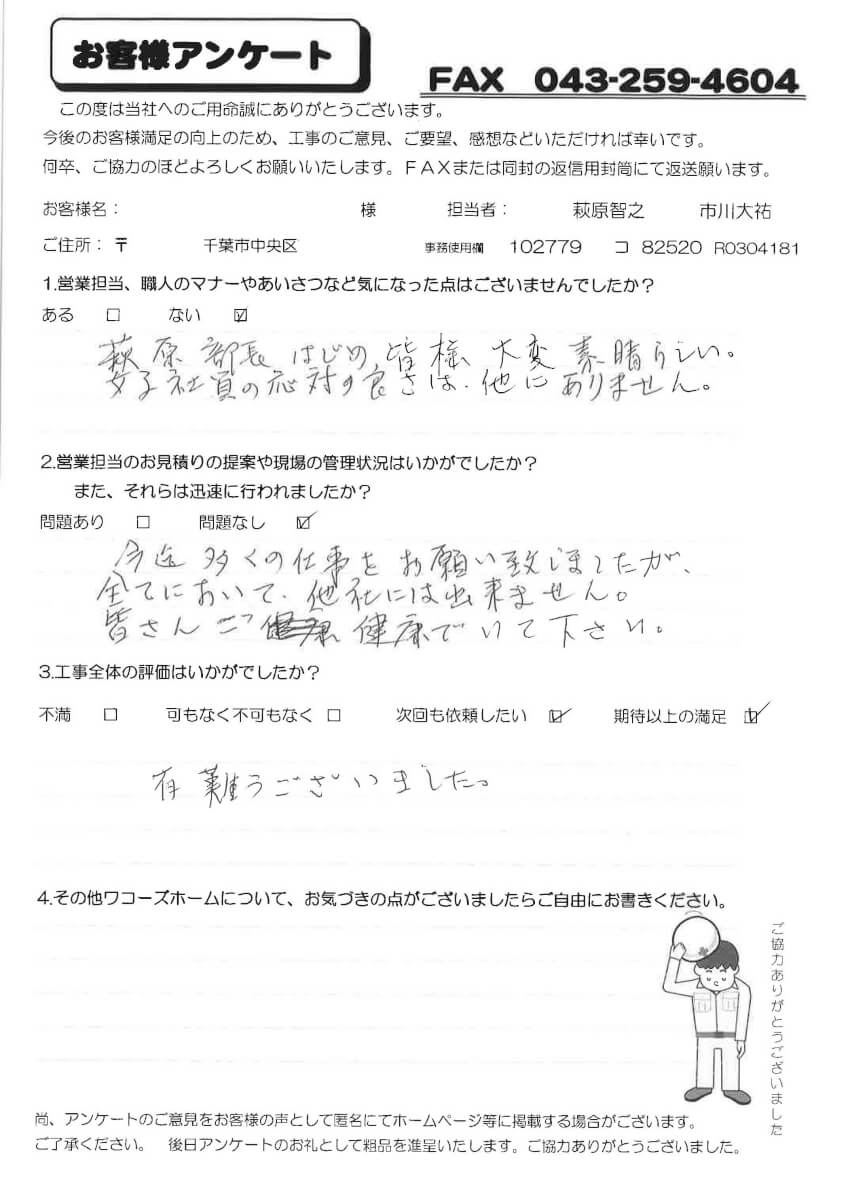 お客様アンケート
FAX 043-259-4604
この度は当社へのご用命誠にありがとうございます。
今後のお客様満足の向上のため、工事のご意見、ご要望、感想などいただければ幸いです。
何卒、ご協力のほどよろしくお願いいたします。FAXまたは同封の返信用封筒にて返送願います。
お客様名： 様 担当者： 萩原智之 市川大祐
ご住所：〒 千葉市中央区 事務使用欄 102779 コ 82520 R0304181
1.営業担当、職人のマナーやあいさつなど気になった点はございませんでしたか？
ある □ ない ☑
萩原部長はじめ皆様大変素晴らしい。
女子社員の応対の良さは、他にありません。
2.営業担当のお見積りの提案や現場の管理状況はいかがでしたか？
また、それらは迅速に行われましたか？
問題あり □ 問題なし ☑
今迄多くの仕事をお願い致しましたが、
全てにおいて、他社には出来ません。
皆さんご健康でいて下さい。
3.工事全体の評価はいかがでしたか？
不満 □ 可もなく不可もなく □ 次回も依頼したい ☑ 期待以上の満足 ☑
有難うございました。
4.その他ワコーズホームについて、お気づきの点がございましたらご自由にお書きください。
ご協力ありがとうございました
尚、アンケートのご意見をお客様の声として匿名にてホームページ等に掲載する場合がございます。
ご了承ください。 後日アンケートのお礼として粗品を進呈いたします。ご協力ありがとうございました。